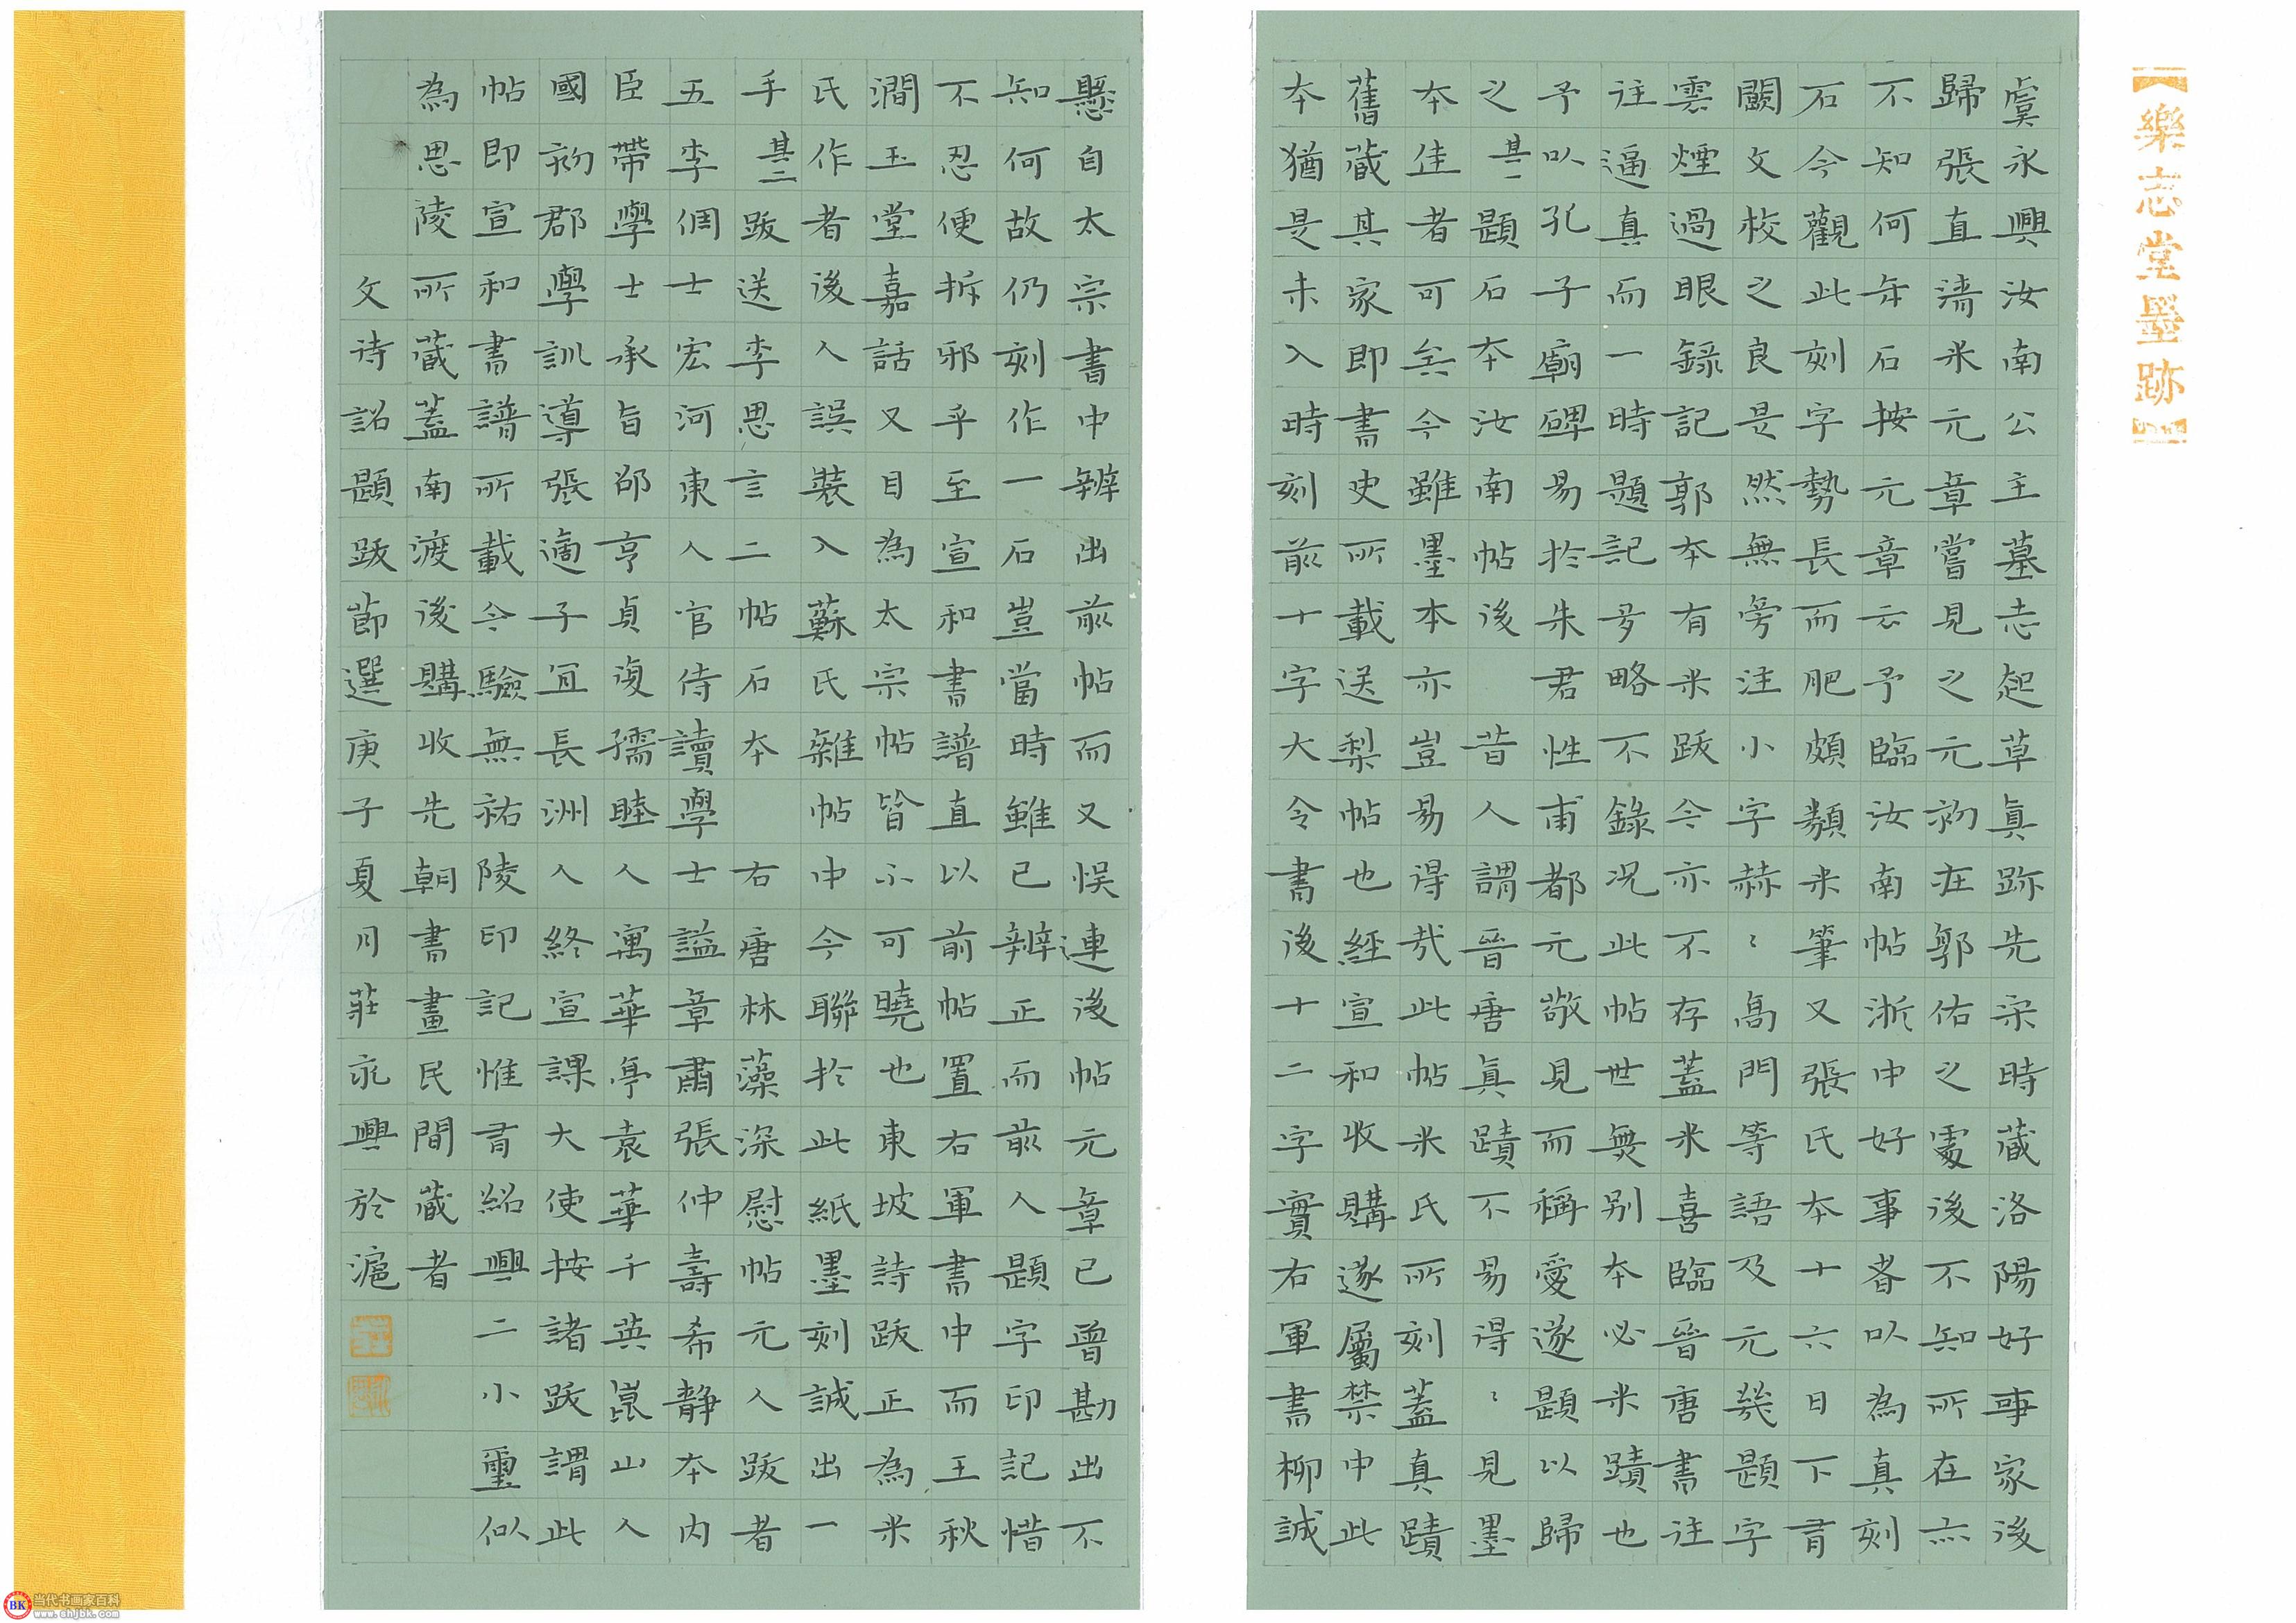 樂志堂墨跡
虞永興汝南公主墓志起草真跡先宋時藏洛陽好事家後
歸張直清米元章嘗見之元初在郭佑之處後不知所在亦
不知何年石按元章云予臨汝南帖浙中好事者以為真刻
石今觀此刻字勢長而肥頗類米筆又張氏本十六日下有
闕文校之良是然無旁注小字赫〻高門等語及元幾題字
雲煙過眼錄記郭本有米跋今亦不存蓋米喜臨晉唐書往
往逼真而一時題記多略不錄況此帖世無別本必米蹟也
予以孔子廟碑易於朱君性甫都元敬見而稱愛遂題以歸
之 其一題石本汝南帖後 昔人謂晉唐真蹟不易得〻見墨
本佳者可矣今雖墨本亦豈易得哉此帖米氏所刻蓋真蹟
舊藏其家即書史所載送梨帖也經宣和收購遂屬禁中此
本猶是未入時刻前十字大令書後十二字實右軍書柳誠
懸自太宗書中辨出前帖而又悮連後帖元章已曾勘出不
知何故仍刻作一石豈當時雖已辨正而前人題字印記惜
不忍便拆邪乎至宣和書譜直以前帖置右軍書中而王秋
澗玉堂嘉話又目為太宗帖皆不可曉也東坡詩跋正為米
氏作者後人誤裝入蘇氏雜帖中今聯於此紙墨刻誠出一
手 其二跋送李思言二帖石本 右唐林藻深慰帖元人跋者
五李倜士宏河東人官侍讀學士謚章肅張仲壽希靜本內
臣帶學士承旨邵亨貞復孺睦人寓華亭袁華子英崑山人
國初郡學訓導張適子宜長洲人終宣課大使按諸跋謂此
帖即宣和書譜所載今驗無祐陵印記惟有紹興二小璽似
為思陵所藏蓋南渡後購收先朝書畫民間藏者
文待詔題跋節選庚子夏月莊永興於滬
当代书画家百科
www.shjbk.com